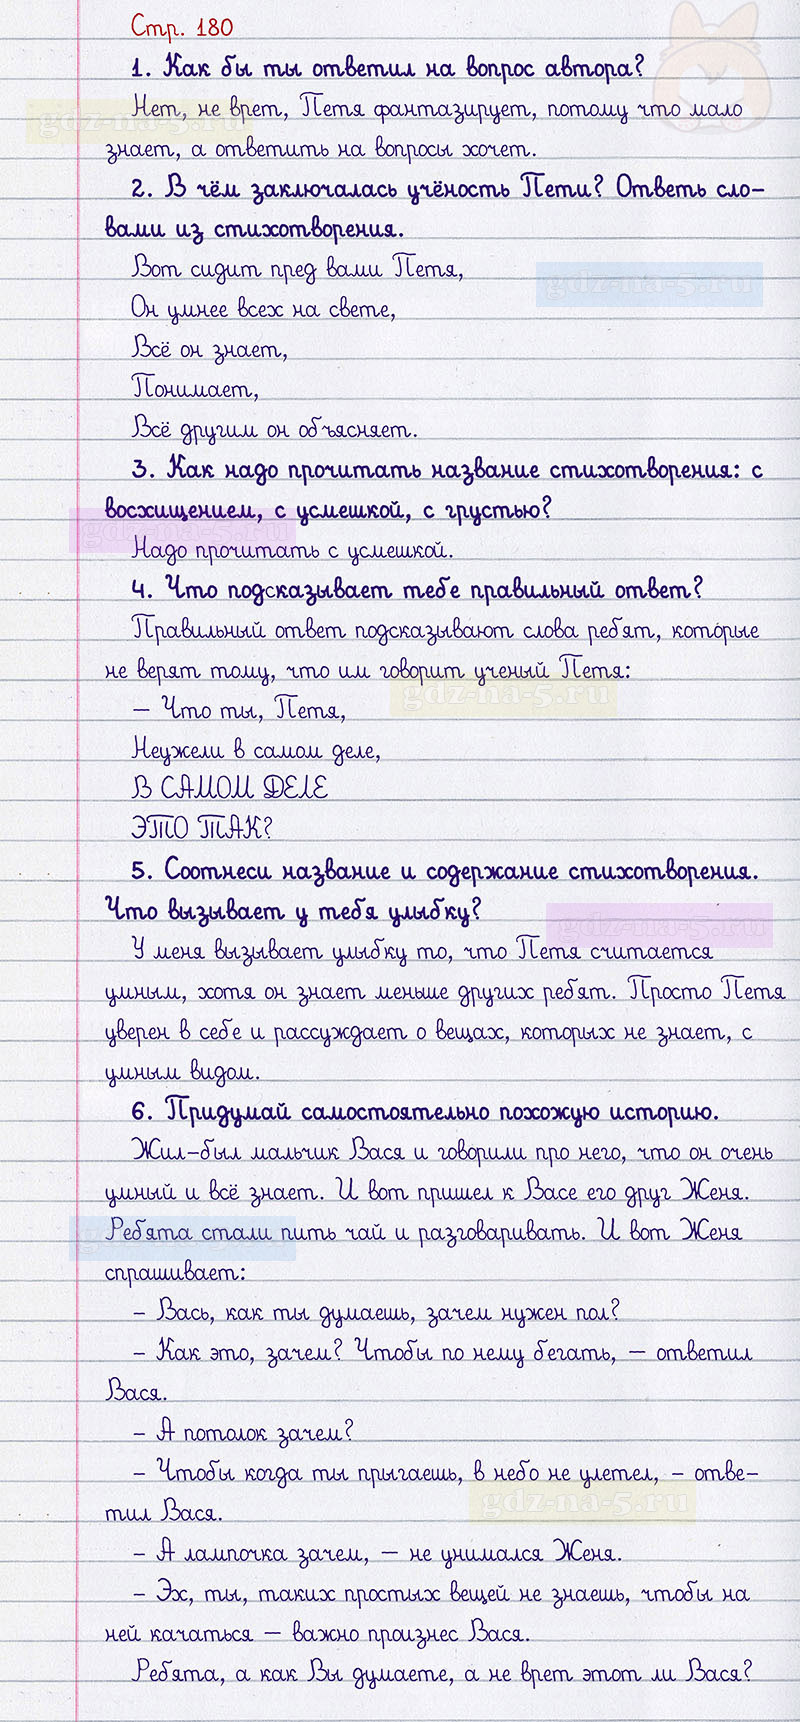 Стр. 180
1. Как бы ты ответил на вопрос автора?
Нет, не врет, Петя фантазирует, потому что мало
gdz-na-5.ru
знает, а ответить на вопросы хочет.
2. В чём заключалась учёность Пети? Ответь сло-
вами из стихотворения.
Вот сидит пред вами Петя,
gdz-na-5.ru
Он умнее всех на свете,
Всё он знает,
Понимает,
Всё другим он объясняет.
3. Как надо прочитать название стихотворения: с
восхищением, с усмешкой, с грустью?
gdz-na-5.ru
Надо прочитать с усмешкой.
4. Что подсказывает тебе правильный ответ?
Правильный ответ подсказывают слова ребят, которые
не верят тому, что им говорит ученый Петя:
gdz-na-5.ru
– Что ты, Петя,
Неужели в самом деле,
В САМОМ ДЕЛЕ
ЭТО ТАК?
5. Соотнеси название и содержание стихотворения.
Что вызывает у тебя улыбку?
gdz-na-5.ru
У меня вызывает улыбку то, что Петя считается
умным, хотя он знает меньше других ребят. Просто Петя
уверен в себе и рассуждает о вещах, которых не знает, с
умным видом.
6. Придумай самостоятельно похожую историю.
Жил-был мальчик Вася и говорили про него, что он очень
умный и всё знает. И вот пришел к Васе его друг Женя.
Ребята стали пить чай и разговаривать. И вот Женя
gdz-na-5.ru
спрашивает:
– Вась, как ты думаешь, зачем нужен пол?
– Как это, зачем? Чтобы по нему бегать, – ответил
Вася.
– А потолок зачем?
– Чтобы когда ты прыгаешь, в небо не улетел, – отве-
gdz-na-5.ru
тил Вася.
– А лампочка зачем, – не унимался Женя.
– Эх, ты, таких простых вещей не знаешь, чтобы на
ней качаться – важно произнес Вася.
Ребята, а как Вы думаете, а не врет этот ли Вася?